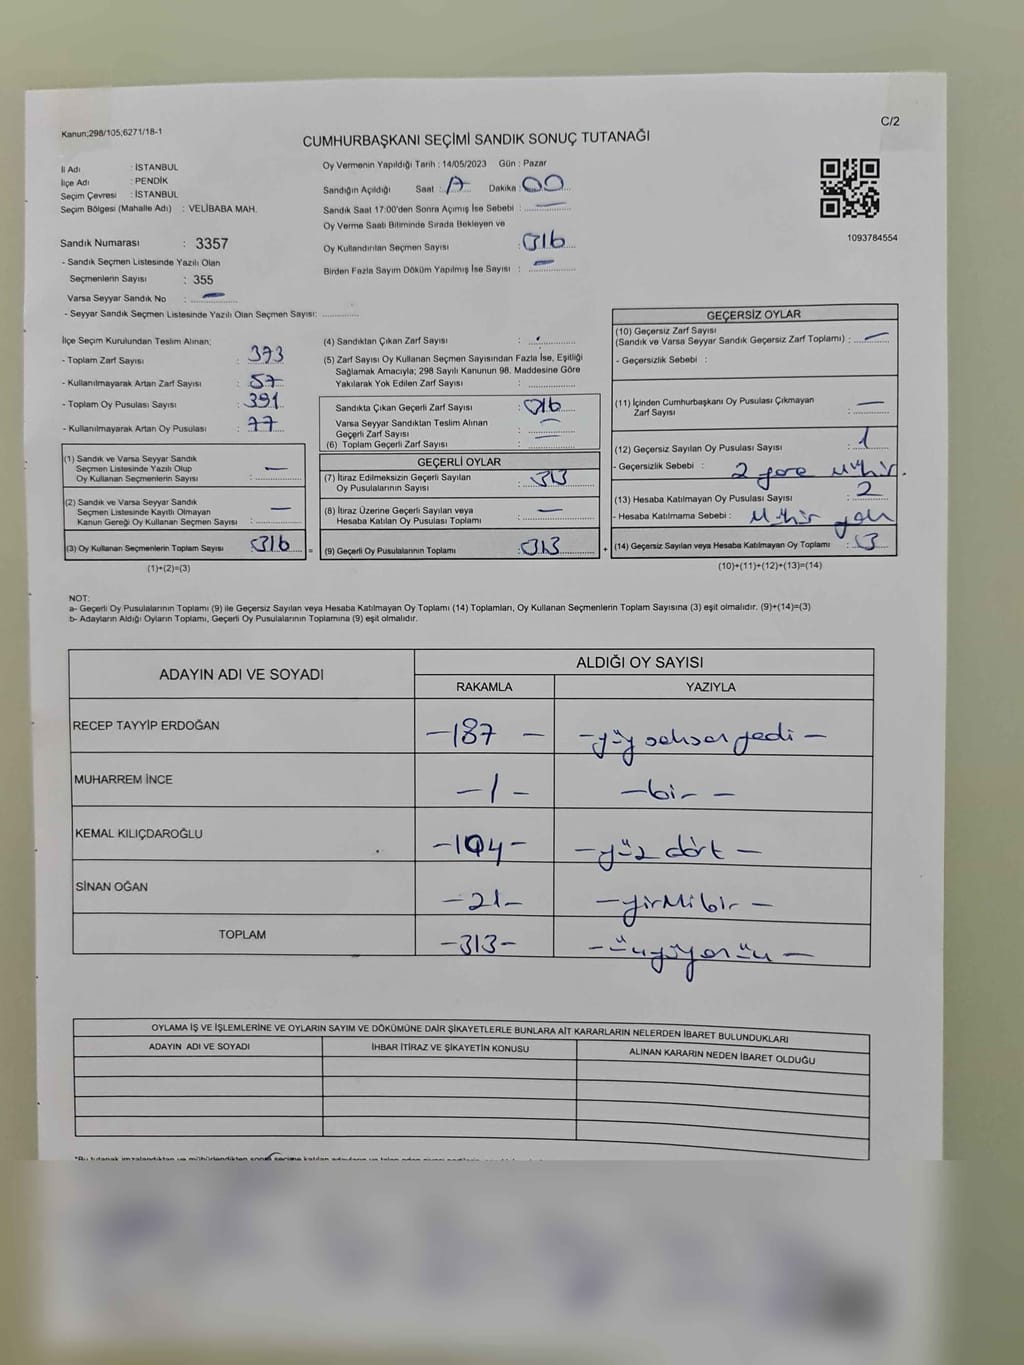 Kanun;298/105,6271/18-1
C/2
CUMHURBAŞKANI SEÇİMİ SANDIK SONUÇ TUTANAĞI
İl Adı : İSTANBUL
İlçe Adı : PENDİK
Seçim Çevresi : İSTANBUL
Seçim Bölgesi (Mahalle Adı) : VELİBABA MAH.
Sandık Numarası : 3357
- Sandık Seçmen Listesinde Yazılı Olan
Seçmenlerin Sayısı : 355
Varsa Seyyar Sandık No : —
- Seyyar Sandık Seçmen Listesinde Yazılı Olan Seçmen Sayısı:
Oy Vermenin Yapıldığı Tarih : 14/05/2023 Gün : Pazar
Sandığın Açıldığı Saat : 17 Dakika : 00
Sandık Saat 17:00'den Sonra Açımış İse Sebebi : —
Oy Verme Saati Bitiminde Sırada Bekleyen ve
Oy Kullandırılan Seçmen Sayısı : 316
Birden Fazla Sayım Döküm Yapılmış İse Sayısı : —
1093784554
İlçe Seçim Kurulundan Teslim Alınan;
- Toplam Zarf Sayısı : 373
- Kullanılmayarak Artan Zarf Sayısı : 57
- Toplam Oy Pusulası Sayısı : 391
- Kullanılmayarak Artan Oy Pusulası : 77
(1) Sandık ve Varsa Seyyar Sandık
Seçmen Listesinde Yazılı Olup
Oy Kullanan Seçmenlerin Sayısı : —
(2) Sandık ve Varsa Seyyar Sandık
Seçmen Listesinde Kayıtlı Olmayan
Kanun Gereği Oy Kullanan Seçmen Sayısı : —
(3) Oy Kullanan Seçmenlerin Toplam Sayısı 316 =
(1)+(2)=(3)
(4) Sandıktan Çıkan Zarf Sayısı :
(5) Zarf Sayısı Oy Kullanan Seçmen Sayısından Fazla İse, Eşitliği
Sağlamak Amacıyla; 298 Sayılı Kanunun 98. Maddesine Göre
Yakılarak Yok Edilen Zarf Sayısı :
Sandıkta Çıkan Geçerli Zarf Sayısı : 316
Varsa Seyyar Sandıktan Teslim Alınan
Geçerli Zarf Sayısı : —
(6) Toplam Geçerli Zarf Sayısı : —
GEÇERLİ OYLAR
(7) İtiraz Edilmeksizin Geçerli Sayılan
Oy Pusulalarının Sayısı : 313
(8) İtiraz Üzerine Geçerli Sayılan veya
Hesaba Katılan Oy Pusulası Toplamı : —
(9) Geçerli Oy Pusulalarının Toplamı : 313 +
GEÇERSİZ OYLAR
(10) Geçersiz Zarf Sayısı
(Sandık ve Varsa Seyyar Sandık Geçersiz Zarf Toplamı) : —
- Geçersizlik Sebebi :
(11) İçinden Cumhurbaşkanı Oy Pusulası Çıkmayan
Zarf Sayısı : —
(12) Geçersiz Sayılan Oy Pusulası Sayısı : 1
- Geçersizlik Sebebi : 2 Mühür.
(13) Hesaba Katılmayan Oy Pusulası Sayısı : 2
- Hesaba Katılmama Sebebi : Mühür yok
(14) Geçersiz Sayılan veya Hesaba Katılmayan Oy Toplamı : 3
(10)+(11)+(12)+(13)=(14)
NOT:
a- Geçerli Oy Pusulalarının Toplamı (9) ile Geçersiz Sayılan veya Hesaba Katılmayan Oy Toplamı (14) Toplamları, Oy Kullanan Seçmenlerin Toplam Sayısına (3) eşit olmalıdır. (9)+(14)=(3)
b- Adayların Aldığı Oyların Toplamı, Geçerli Oy Pusulalarının Toplamına (9) eşit olmalıdır.
ADAYIN ADI VE SOYADI ALDIĞI OY SAYISI
RAKAMLA YAZIYLA
RECEP TAYYİP ERDOĞAN -187- -yüz seksen yedi-
MUHARREM İNCE -1- -bir-
KEMAL KILIÇDAROĞLU -104- -yüz dört-
SİNAN OĞAN -21- -yirmibir-
TOPLAM -313- -üçyüzonüç-
OYLAMA İŞ VE İŞLEMLERİNE VE OYLARIN SAYIM VE DÖKÜMÜNE DAİR ŞİKAYETLERLE BUNLARA AİT KARARLARIN NELERDEN İBARET BULUNDUKLARI
ADAYIN ADI VE SOYADI İHBAR İTİRAZ VE ŞİKAYETİN KONUSU ALINAN KARARIN NEDEN İBARET OLDUĞU